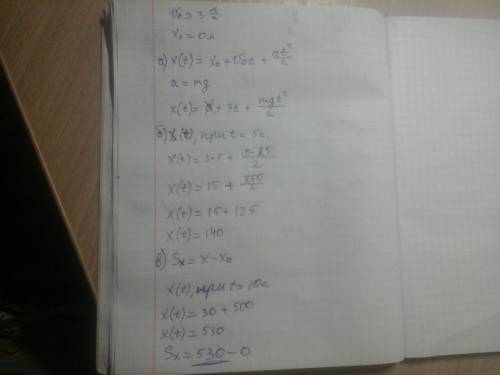 v₀ = 3 м/с
x₀ = 0м
а) x(t) = x₀ + v₀t + at²/2
a = mg
x(t) = 0 + 3t + mgt²/2
б) x(t), при t = 5с.
x(t) = 3·5 + 25/2
x(t) = 15 + 250/2
x(t) = 15 + 125
x(t) = 140
в) Sx = x - x₀
x(t), при t = 10с
x(t) = 30 + 500
x(t) = 530
Sx = 530 - 0